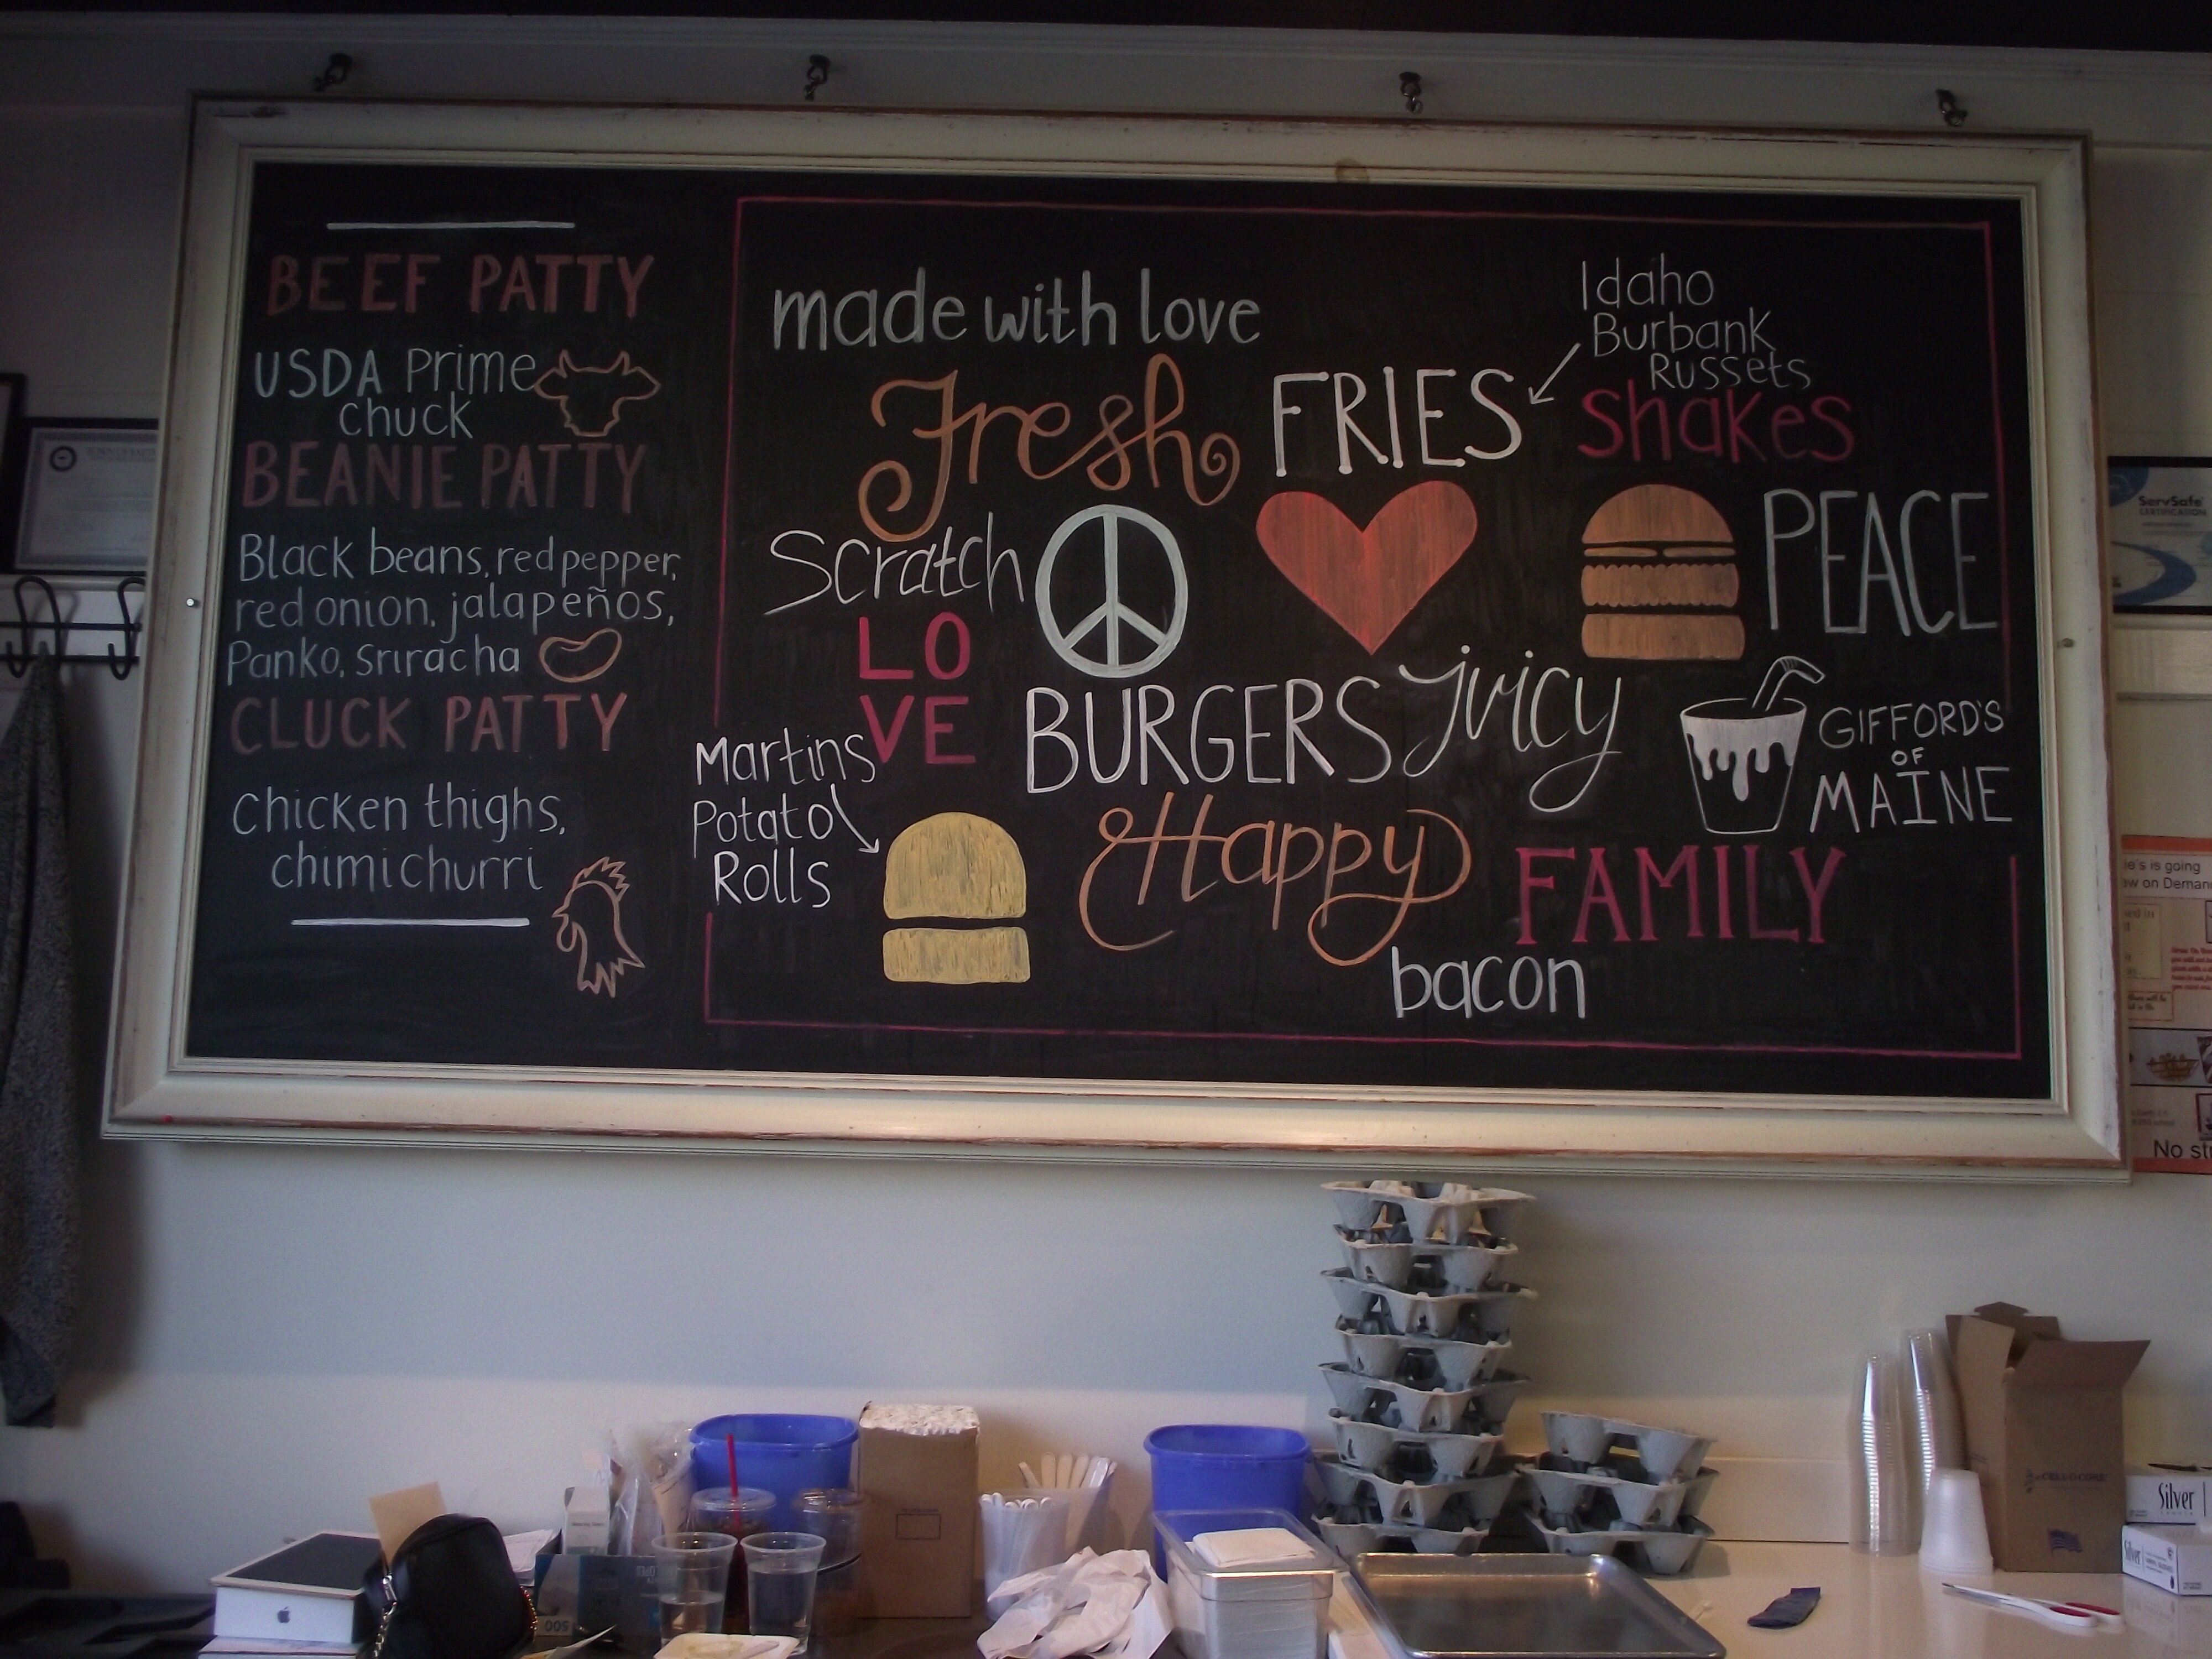 BEEF PATTY
USDA Prime
chuck
BEANIE PATTY
Black beans, red pepper,
red onion, jalapeños,
Panko, sriracha
CLUCK PATTY
Chicken thighs,
chimichurri
made with love
Fresh
FRIES
Idaho
Burbank
Russets
shakes
Scratch
PEACE
LO
VE
BURGERS
juicy
GIFFORD'S
OF
MAINE
Martins
Potato
Rolls
Happy
FAMILY
bacon
ServSafe
CERTIFICATION
is going
on
No
CELL-O-CORE
Silver
Silver
500